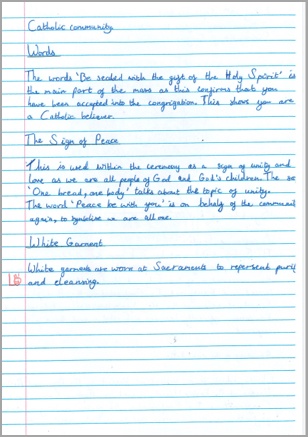 Catholic community
Words
The words 'Be sealed with the gift of the Holy Spirit' is
the main part of the mass as this confirms that you
have been accepted into the congrigation. This shows you are
a Catholic believer.
The Sign of Peace
This is used within the ceremony as a sign of unity and
love as we are all people of God and God's children. The so
'One bread, one body' talks about the topic of unity.
The word 'Peace be with you' is on behalf of the communi
again, to symbolise we are all one.
White Garment
White garments are worn at Sacraments to represent puri
and cleansing.